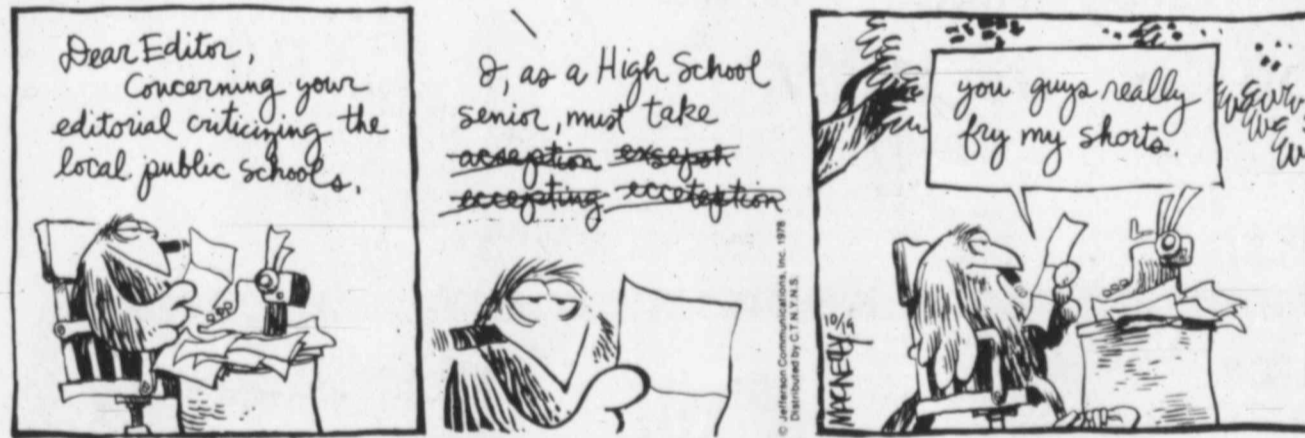 Dear Editor,
Concerning your
editorial criticizing the
local public schools,
I, as a High School
senior, must take
acseption exsepsh
eccepting ecceteption
© Jefferson Communications, Inc. 1978
Distributed by C.T.N.Y.N.S.
you guys really
fry my shorts.
10/19
MACNELLY